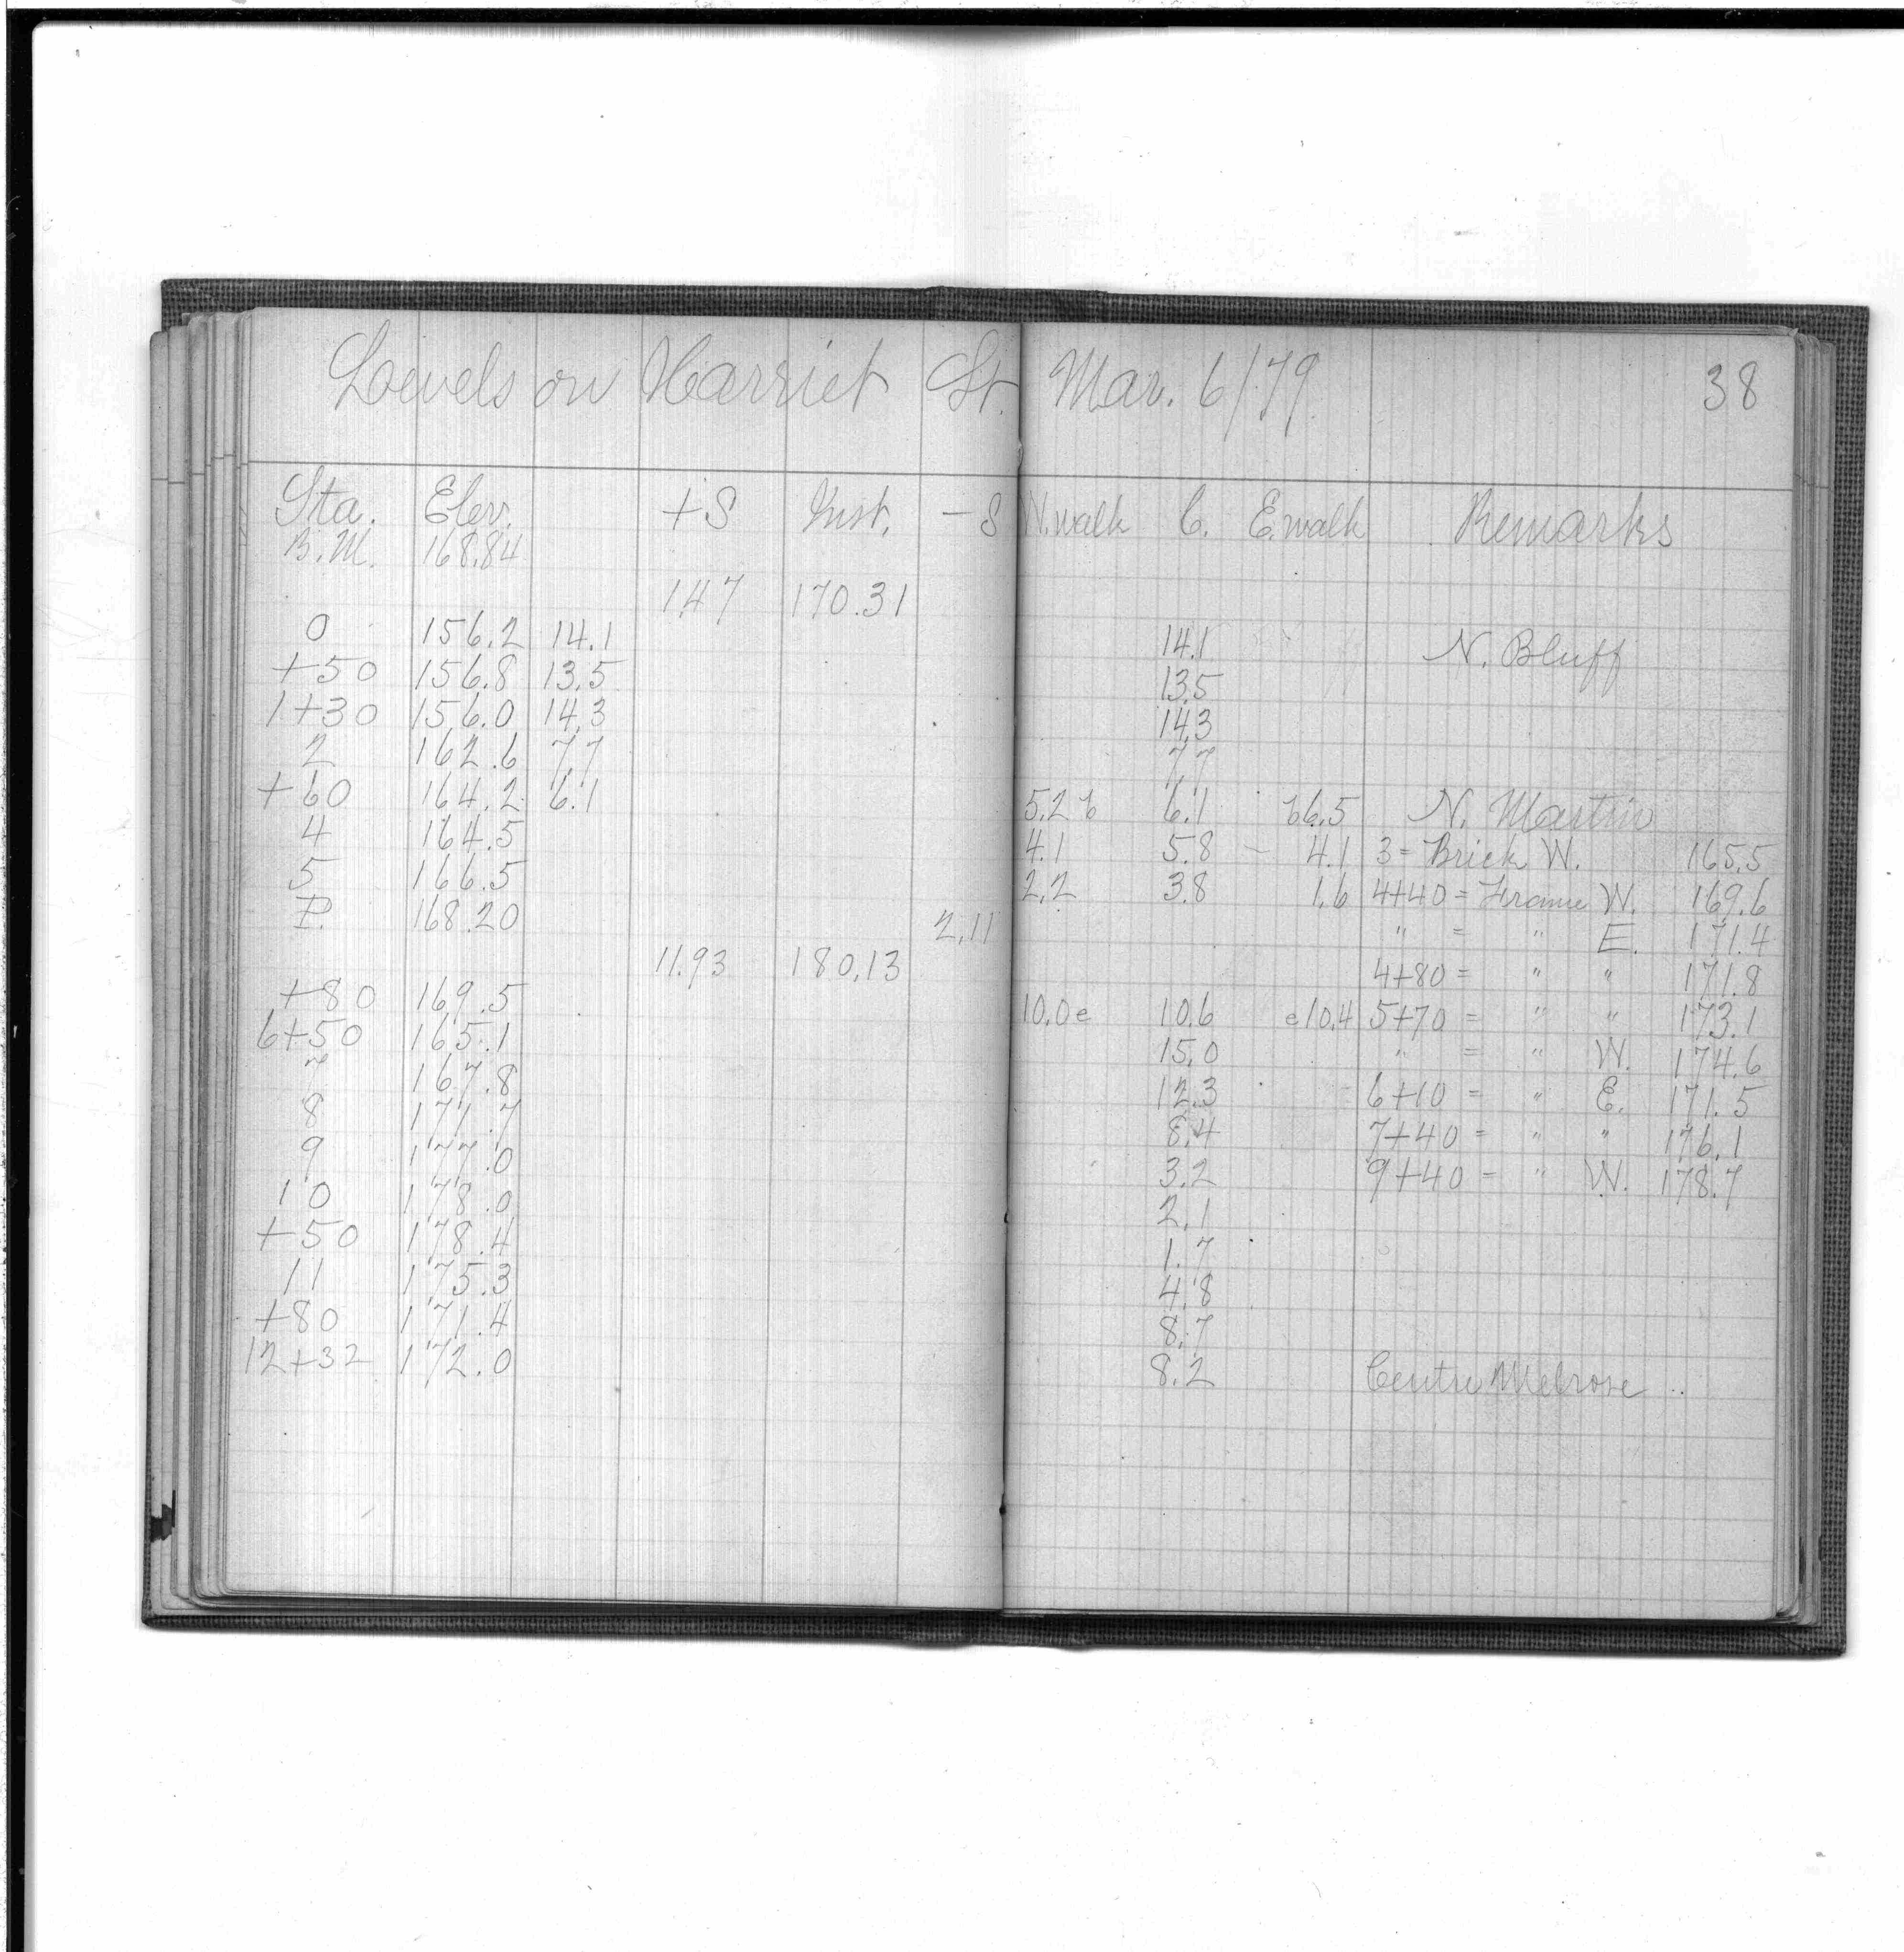 Levels on Harriet St. Mar. 6/79 38
Sta. Elev. +S Inst. -S W.walk C. E.walk Remarks
B.M. 168.84
1.47 170.31
0 156.2 14.1 14.1 N. Bluff
+50 156.8 13.5 13.5
1+30 156.0 14.3 14.3
2 162.6 7.7 7.7
+60 164.2 6.1 5.2 b 6.1 b6.5 N. Martin
4 164.5 4.1 5.8 - 4.1 3 = Brick W. 165.5
5 166.5 2.2 3.8 1.6 4+40 = Frame W. 169.6
P. 168.20 2.11 " = " E. 171.4
11.93 180.13 4+80 = " " 171.8
+80 169.5 10.0e 10.6 e10.4 5+70 = " " 173.1
6+50 165.1 15.0 " = " W. 174.6
7 167.8 12.3 6+10 = " E. 171.5
8 171.7 8.4 7+40 = " " 176.1
9 177.0 3.2 9+40 = " W. 178.7
10 178.0 2.1
+50 178.4 1.7
11 175.3 4.8
+80 171.4 8.7
12+32 172.0 8.2 Centre Melrose